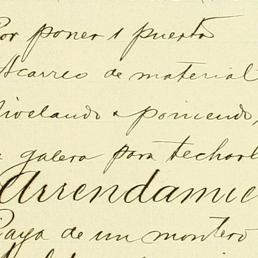 Por poner 1 puerta
Acarreo de material
nivelando + poniendo,
galera para techarl
Arrendamie
Paga de un montero